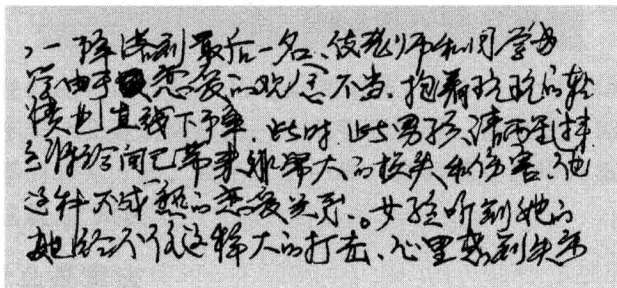 一降落到最后一名、使老师和同学
学由于恋爱的观念不当.抱着玩玩的
绩也直线下降.此时.此男孩
间已带来非常大的损失和伤害.他
这种不成熟的恋爱关系。女孩听到她的
她经不住这样大的打击、心里感到失望